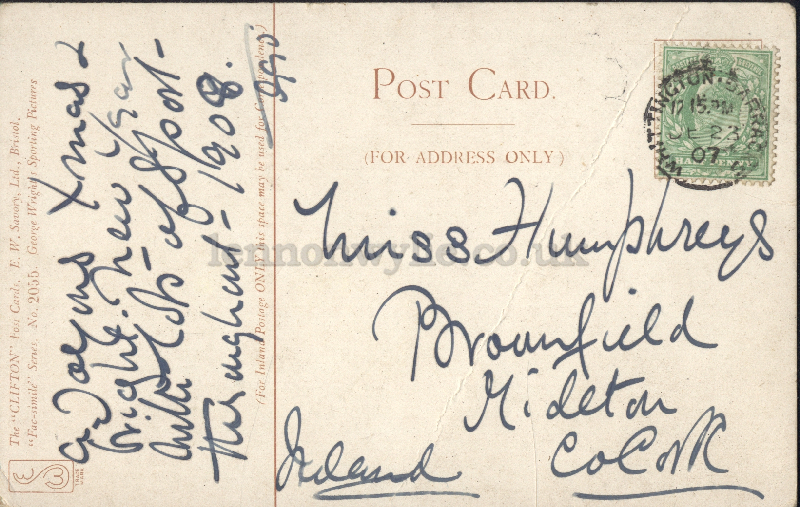 The "CLIFTON" Post Cards. E. W. Savory, Ltd., Bristol.
"Fac-simile" Series. No. 2055. George Wright's Sporting Pictures
TRADE MARK
A Joyous Xmas &
bright New Year
with lots of Sport
throughout 1908.
(For Inland Postage ONLY this space may be used for Correspondence)
POST CARD.
(FOR ADDRESS ONLY)
WHITTINGTON BARRACKS
12 15 PM
DE 23
07
HALFPENNY
Miss Humphreys
Broomfield
Midleton
Co Cork
Ireland
lennonwylie.co.uk